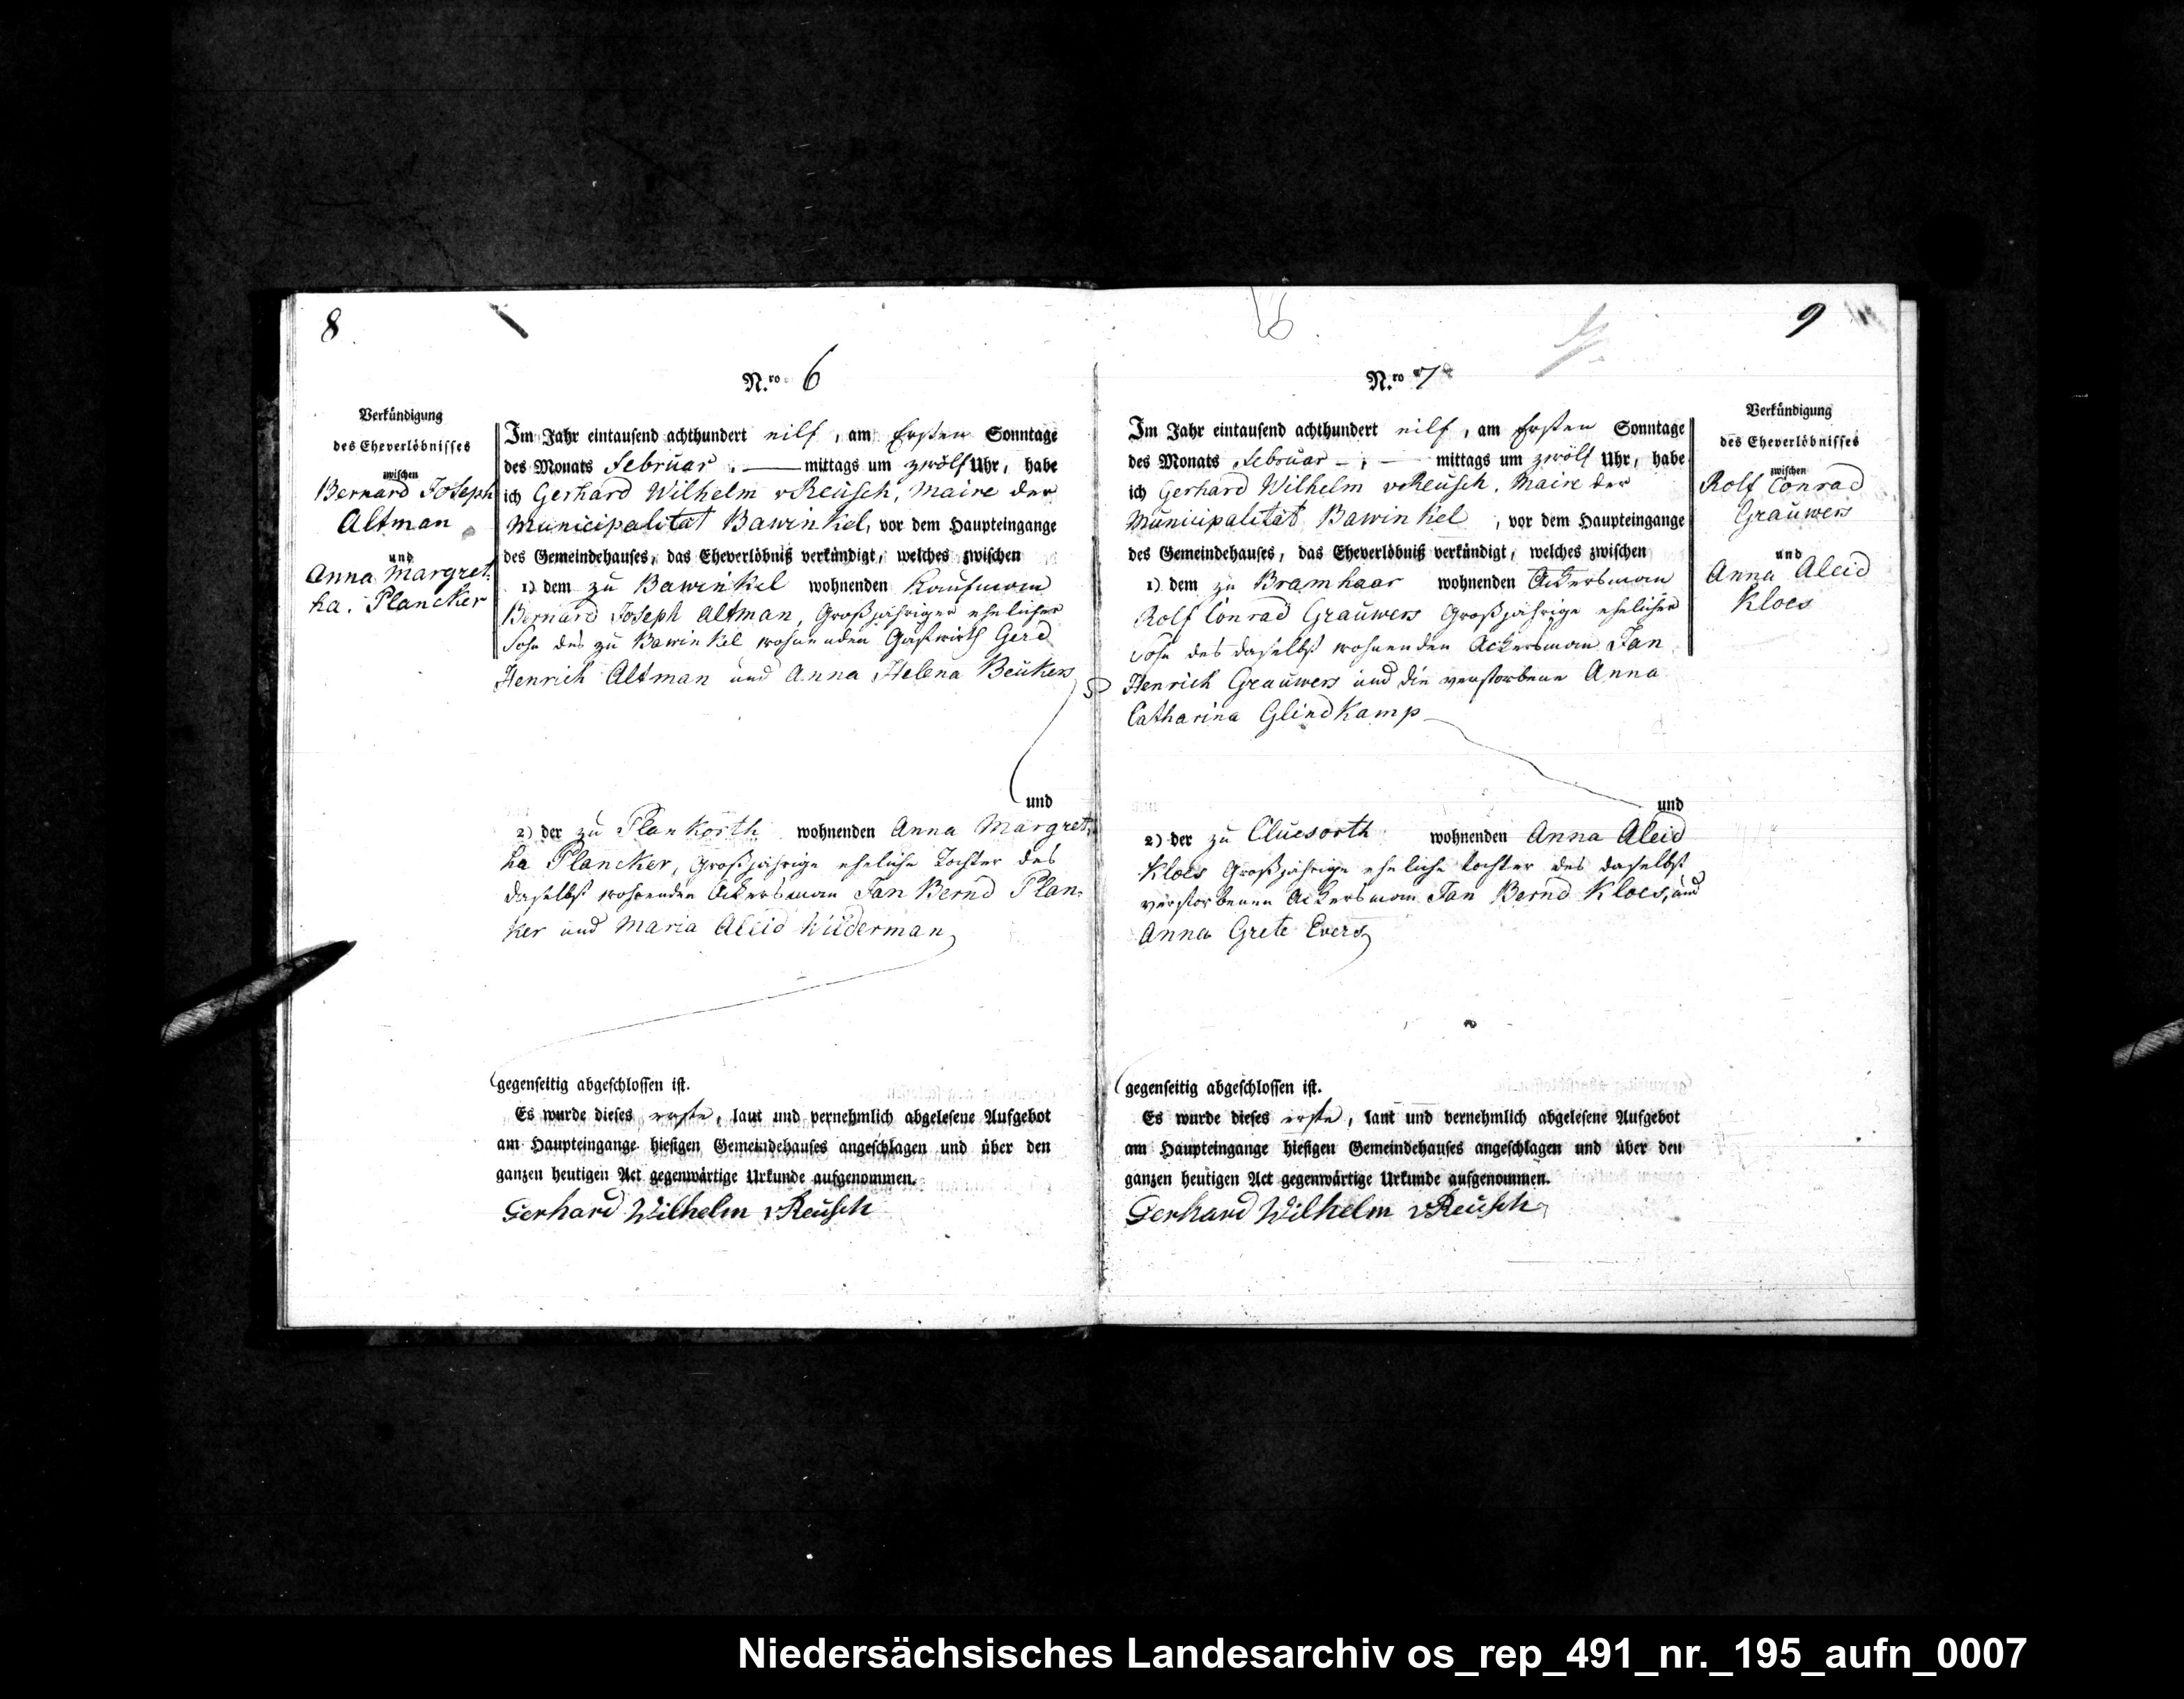 8
N.ro 6
Verkündigung
des Eheverlöbnisses
zwischen
Bernard Joseph
Altman
und
Anna Margret:
ha. Plancker
Im Jahr eintausend achthundert eilf, am Ersten Sonntage
des Monats Februar . — mittags um zwölf Uhr, habe
ich Gerhard Wilhelm vReusch, Maire der
Municipalität Bawinkel, vor dem Haupteingange
des Gemeindehauses, das Eheverlöbniß verkündigt, welches zwischen
1) dem zu Bawinkel wohnenden Kaufman
Bernard Joseph Altman, Großjähriger ehelicher
Sohn des zu Bawinkel wohnenden Gastwirth Gerd
Henrich Altman und Anna Helena Beukers
und
2) der zu Plankorth wohnenden Anna Margret:
ha Plancker, Großjährige eheliche Tochter des
daselbst wohnenden Ackersman Jan Bernd Plan:
ker und Maria Aleid Wilderman
gegenseitig abgeschlossen ist.
Es wurde dieses erste, laut und vernehmlich abgelesene Aufgebot
am Haupteingange hiesigen Gemeindehauses angeschlagen und über den
ganzen heutigen Act gegenwärtige Urkunde aufgenommen.
Gerhard Wilhelm vReusch
9
N.ro 7
Im Jahr eintausend achthundert eilf, am Ersten Sonntage
des Monats Februar — mittags um zwölf Uhr, habe
ich Gerhard Wilhelm vReusch, Maire der
Municipalität Bawinkel, vor dem Haupteingange
des Gemeindehauses, das Eheverlöbniß verkündigt, welches zwischen
1) dem zu Bramhaar wohnenden Ackersman
Rolf Conrad Grauwers Großjährige ehelicher
Sohn des daselbst wohnenden Ackersman Jan
Henrich Grauwers und die verstorbene Anna
Catharina Glindkamp
und
2) der zu Cluesorth wohnenden Anna Aleid
Kloes Großjährige eheliche tochter des daselbst
verstorbenen Ackersman Jan Bernd Kloes, und
Anna Grete Evers
gegenseitig abgeschlossen ist.
Es wurde dieses erste, laut und vernehmlich abgelesene Aufgebot
am Haupteingange hiesigen Gemeindehauses angeschlagen und über den
ganzen heutigen Act gegenwärtige Urkunde aufgenommen.
Gerhard Wilhelm vReusch
Verkündigung
des Eheverlöbnisses
zwischen
Rolf Conrad
Grauwers
und
Anna Aleid
Kloes
Niedersächsisches Landesarchiv os_rep_491_nr._195_aufn_0007